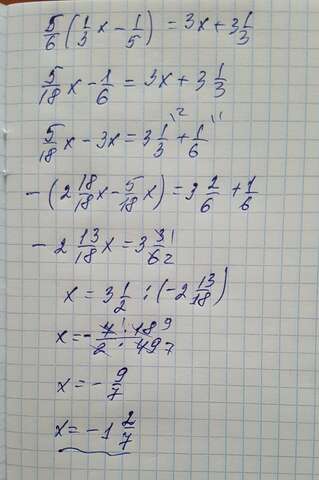 5/6 (1/3 x - 1/5) = 3x + 3 1/3
5/18 x - 1/6 = 3x + 3 1/3
5/18 x - 3x = 3 1/3 \2 + 1/6 \1
- (2 18/18 x - 5/18 x) = 3 2/6 + 1/6
- 2 13/18 x = 3 3 1/6 2
x = 3 1/2 : (-2 13/18)
x = - 7 1 · 18 9 / 2 · 49 7
x = - 9/7
x = -1 2/7